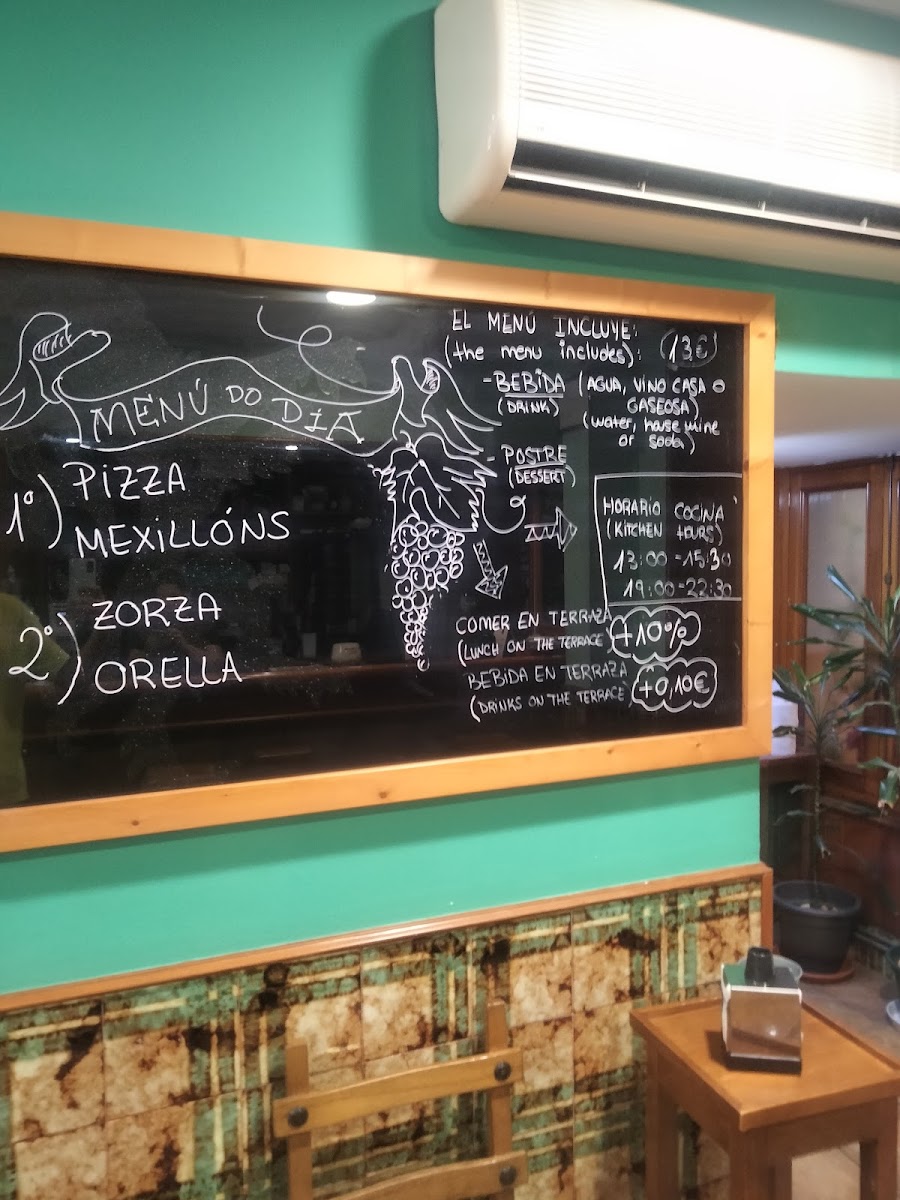 MENÚ DO DIA
1º) PIZZA
MEXILLÓNS
2º) ZORZA
ORELLA
EL MENÚ INCLUYE:
(the menu includes): 13€
- BEBIDA (AGUA, VINO CASA O
(DRINK) GASEOSA)
(water, house wine
or soda)
- POSTRE
(DESSERT)
HORARIO COCINA
(KITCHEN HOURS)
13:00-15:30
19:00-22:30
COMER EN TERRAZA +10%
(LUNCH ON THE TERRACE)
BEBIDA EN TERRAZA +0,10€
(DRINKS ON THE TERRACE